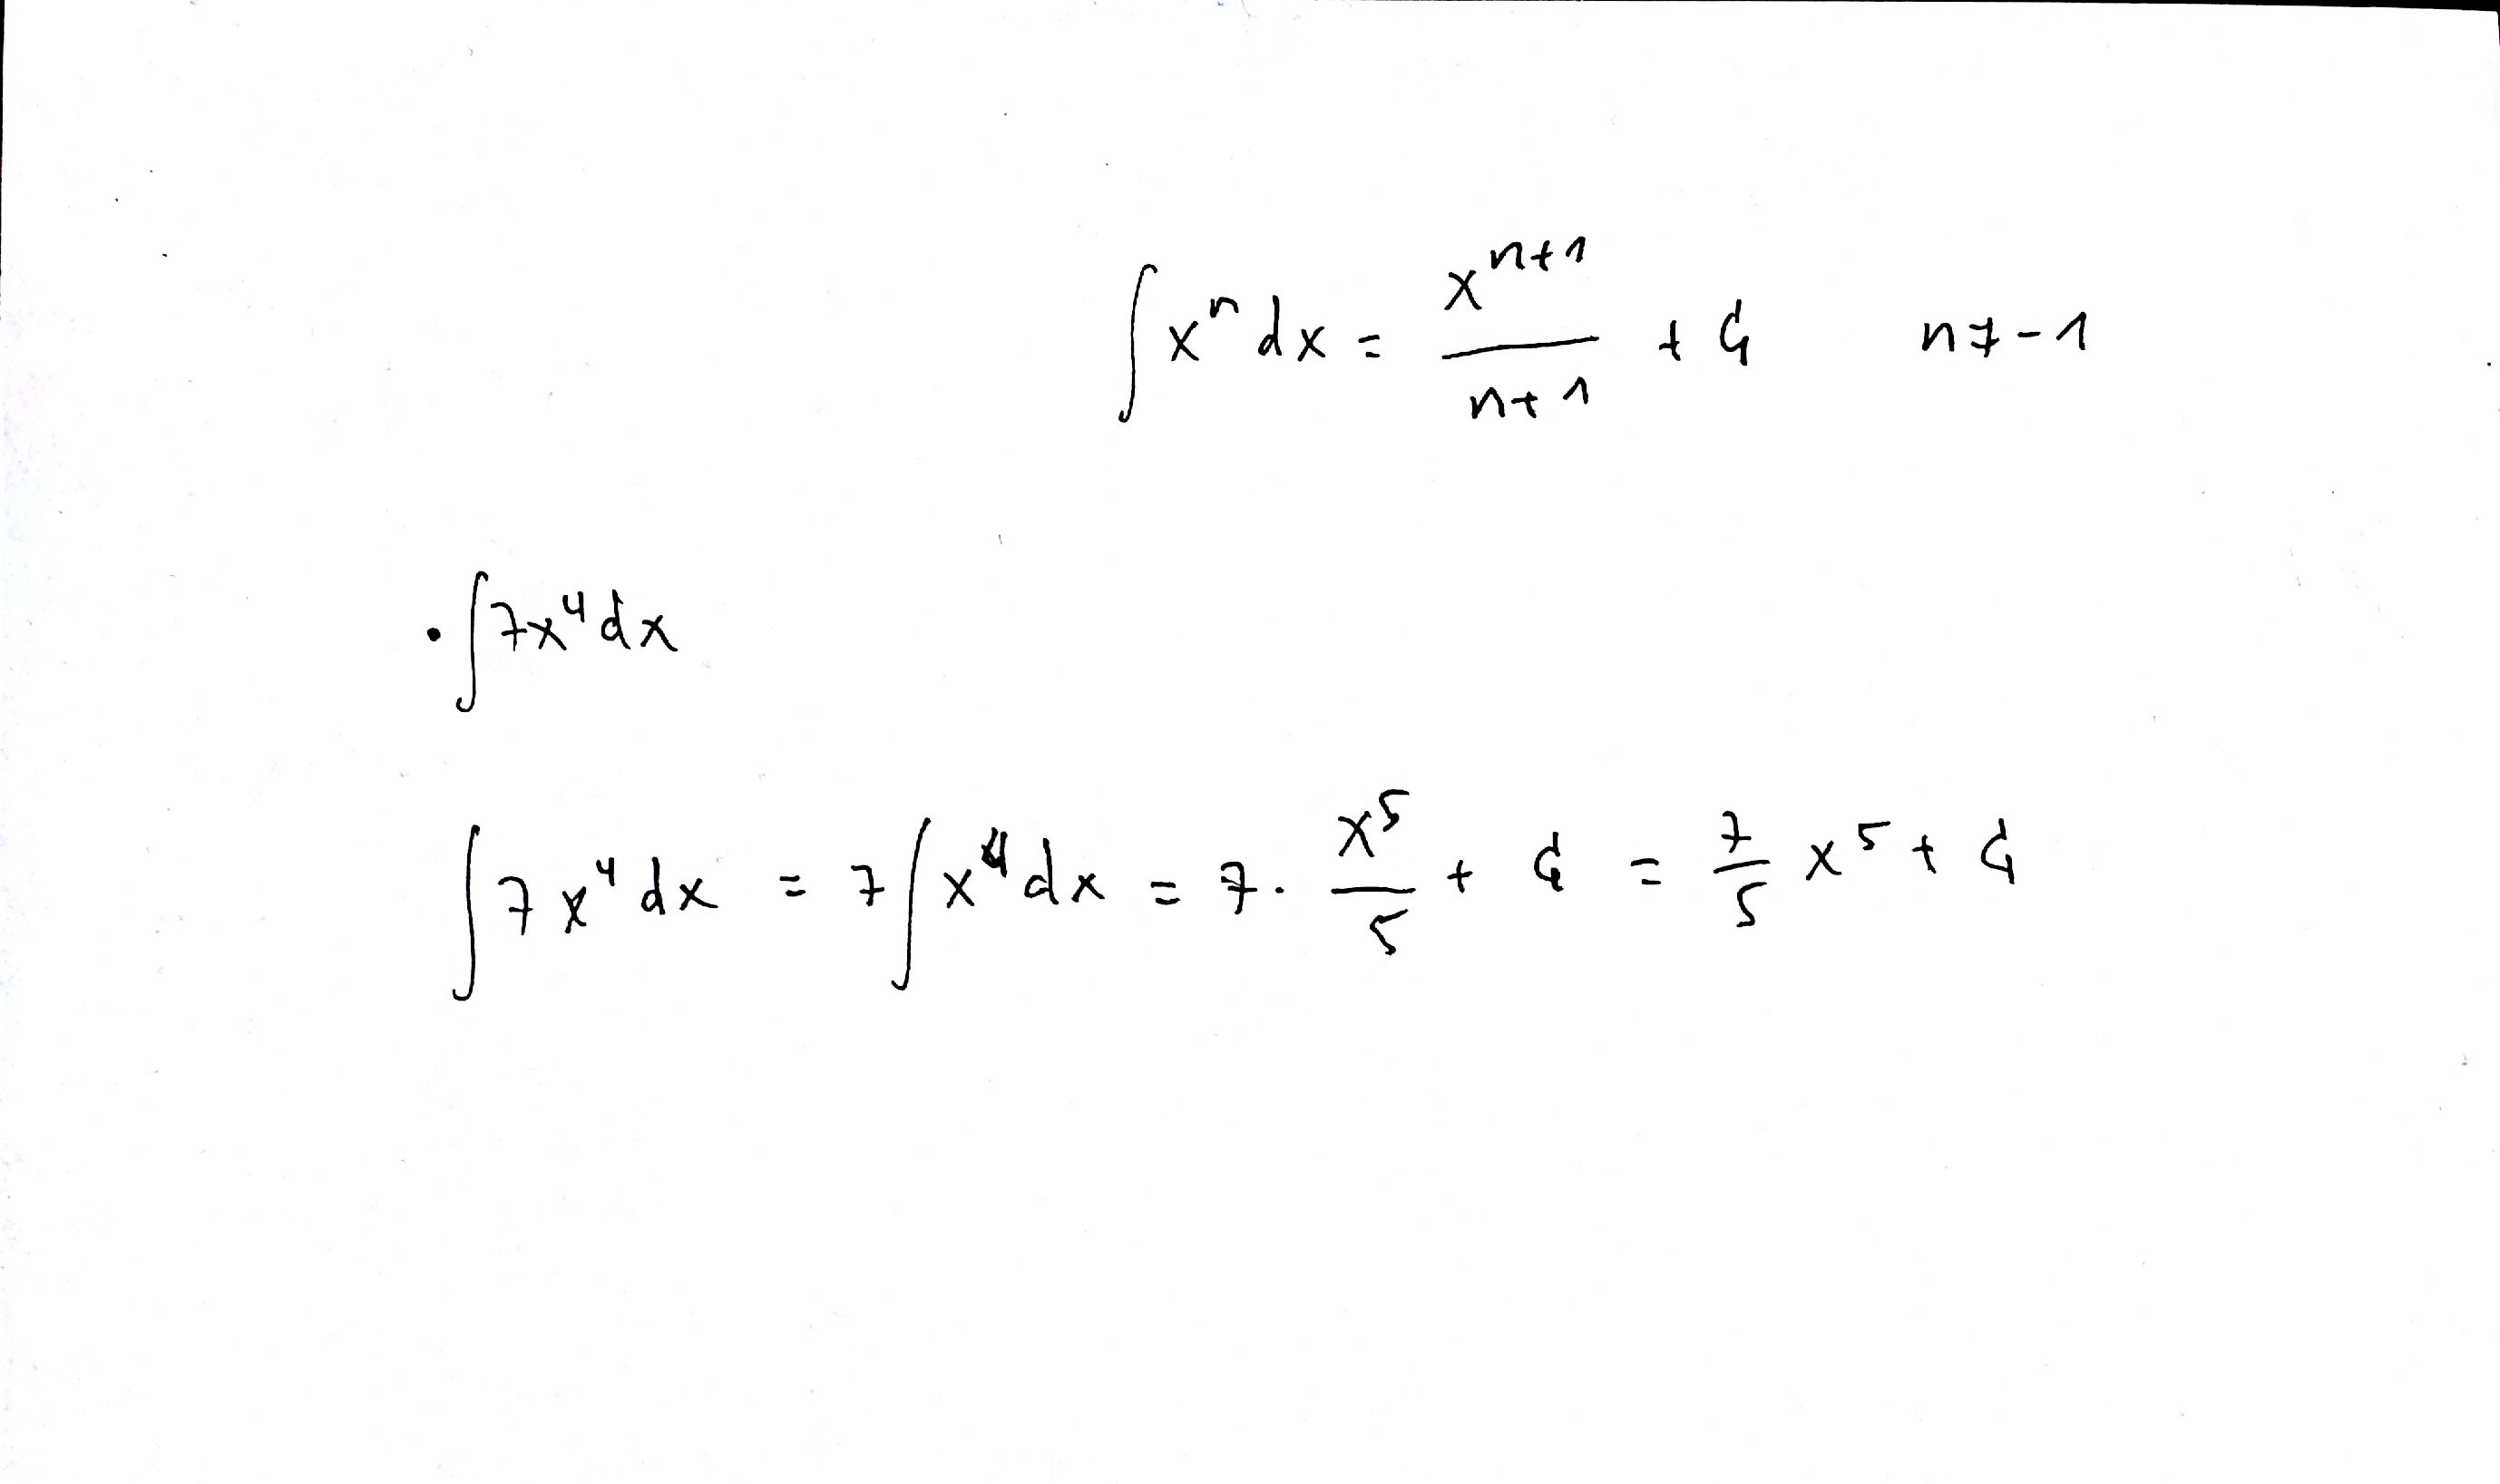 ∫ xⁿ dx = xⁿ⁺¹/(n+1) + C₁ n ≠ -1
• ∫ 7x⁴ dx
∫ 7x⁴ dx = 7 ∫ x⁴ dx = 7 · x⁵/5 + C₁ = 7/5 x⁵ + C₁